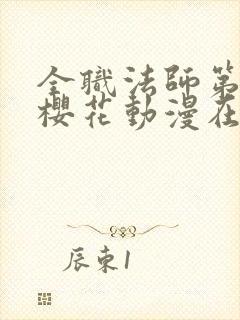 全職法師第
櫻花動漫在
辰東1